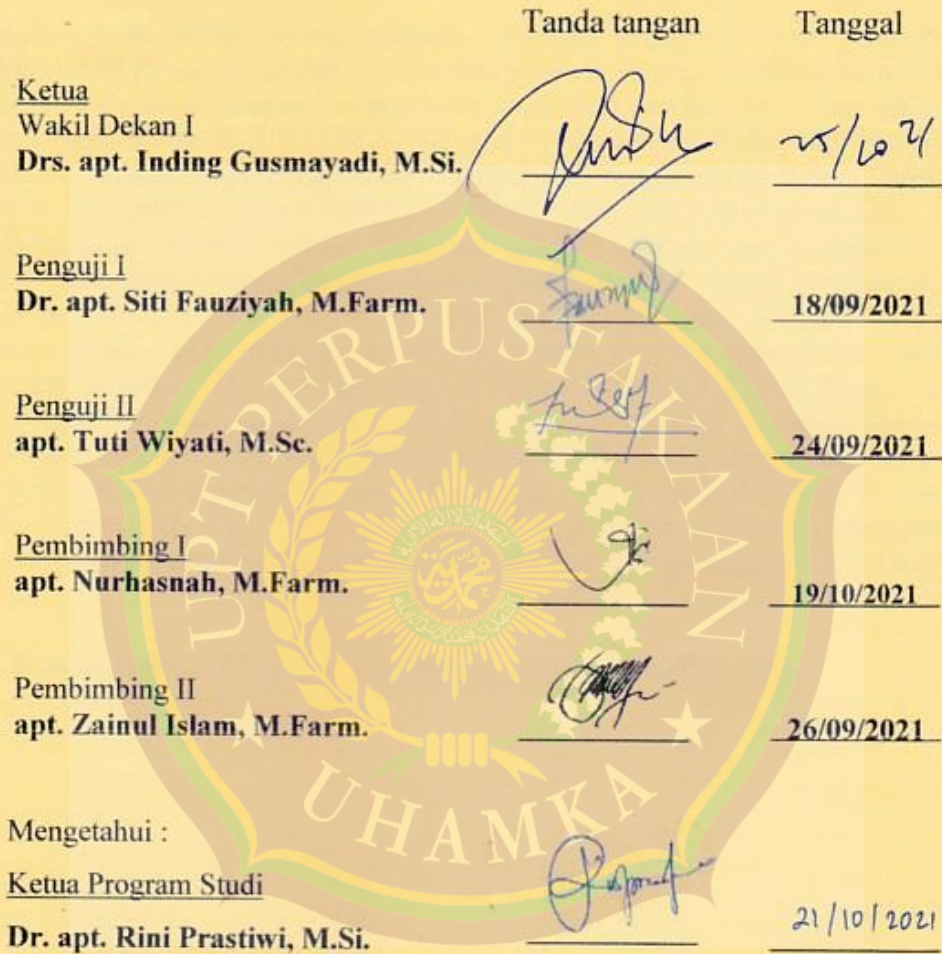 Tanda tangan Tanggal
Ketua
Wakil Dekan I
Drs. apt. Inding Gusmayadi, M.Si. 25/10 21
Penguji I
Dr. apt. Siti Fauziyah, M.Farm. 18/09/2021
Penguji II
apt. Tuti Wiyati, M.Sc. 24/09/2021
Pembimbing I
apt. Nurhasnah, M.Farm. 19/10/2021
Pembimbing II
apt. Zainul Islam, M.Farm. 26/09/2021
Mengetahui :
Ketua Program Studi
Dr. apt. Rini Prastiwi, M.Si. 21/10/2021
UPT PERPUSTAKAAN
UHAMKA